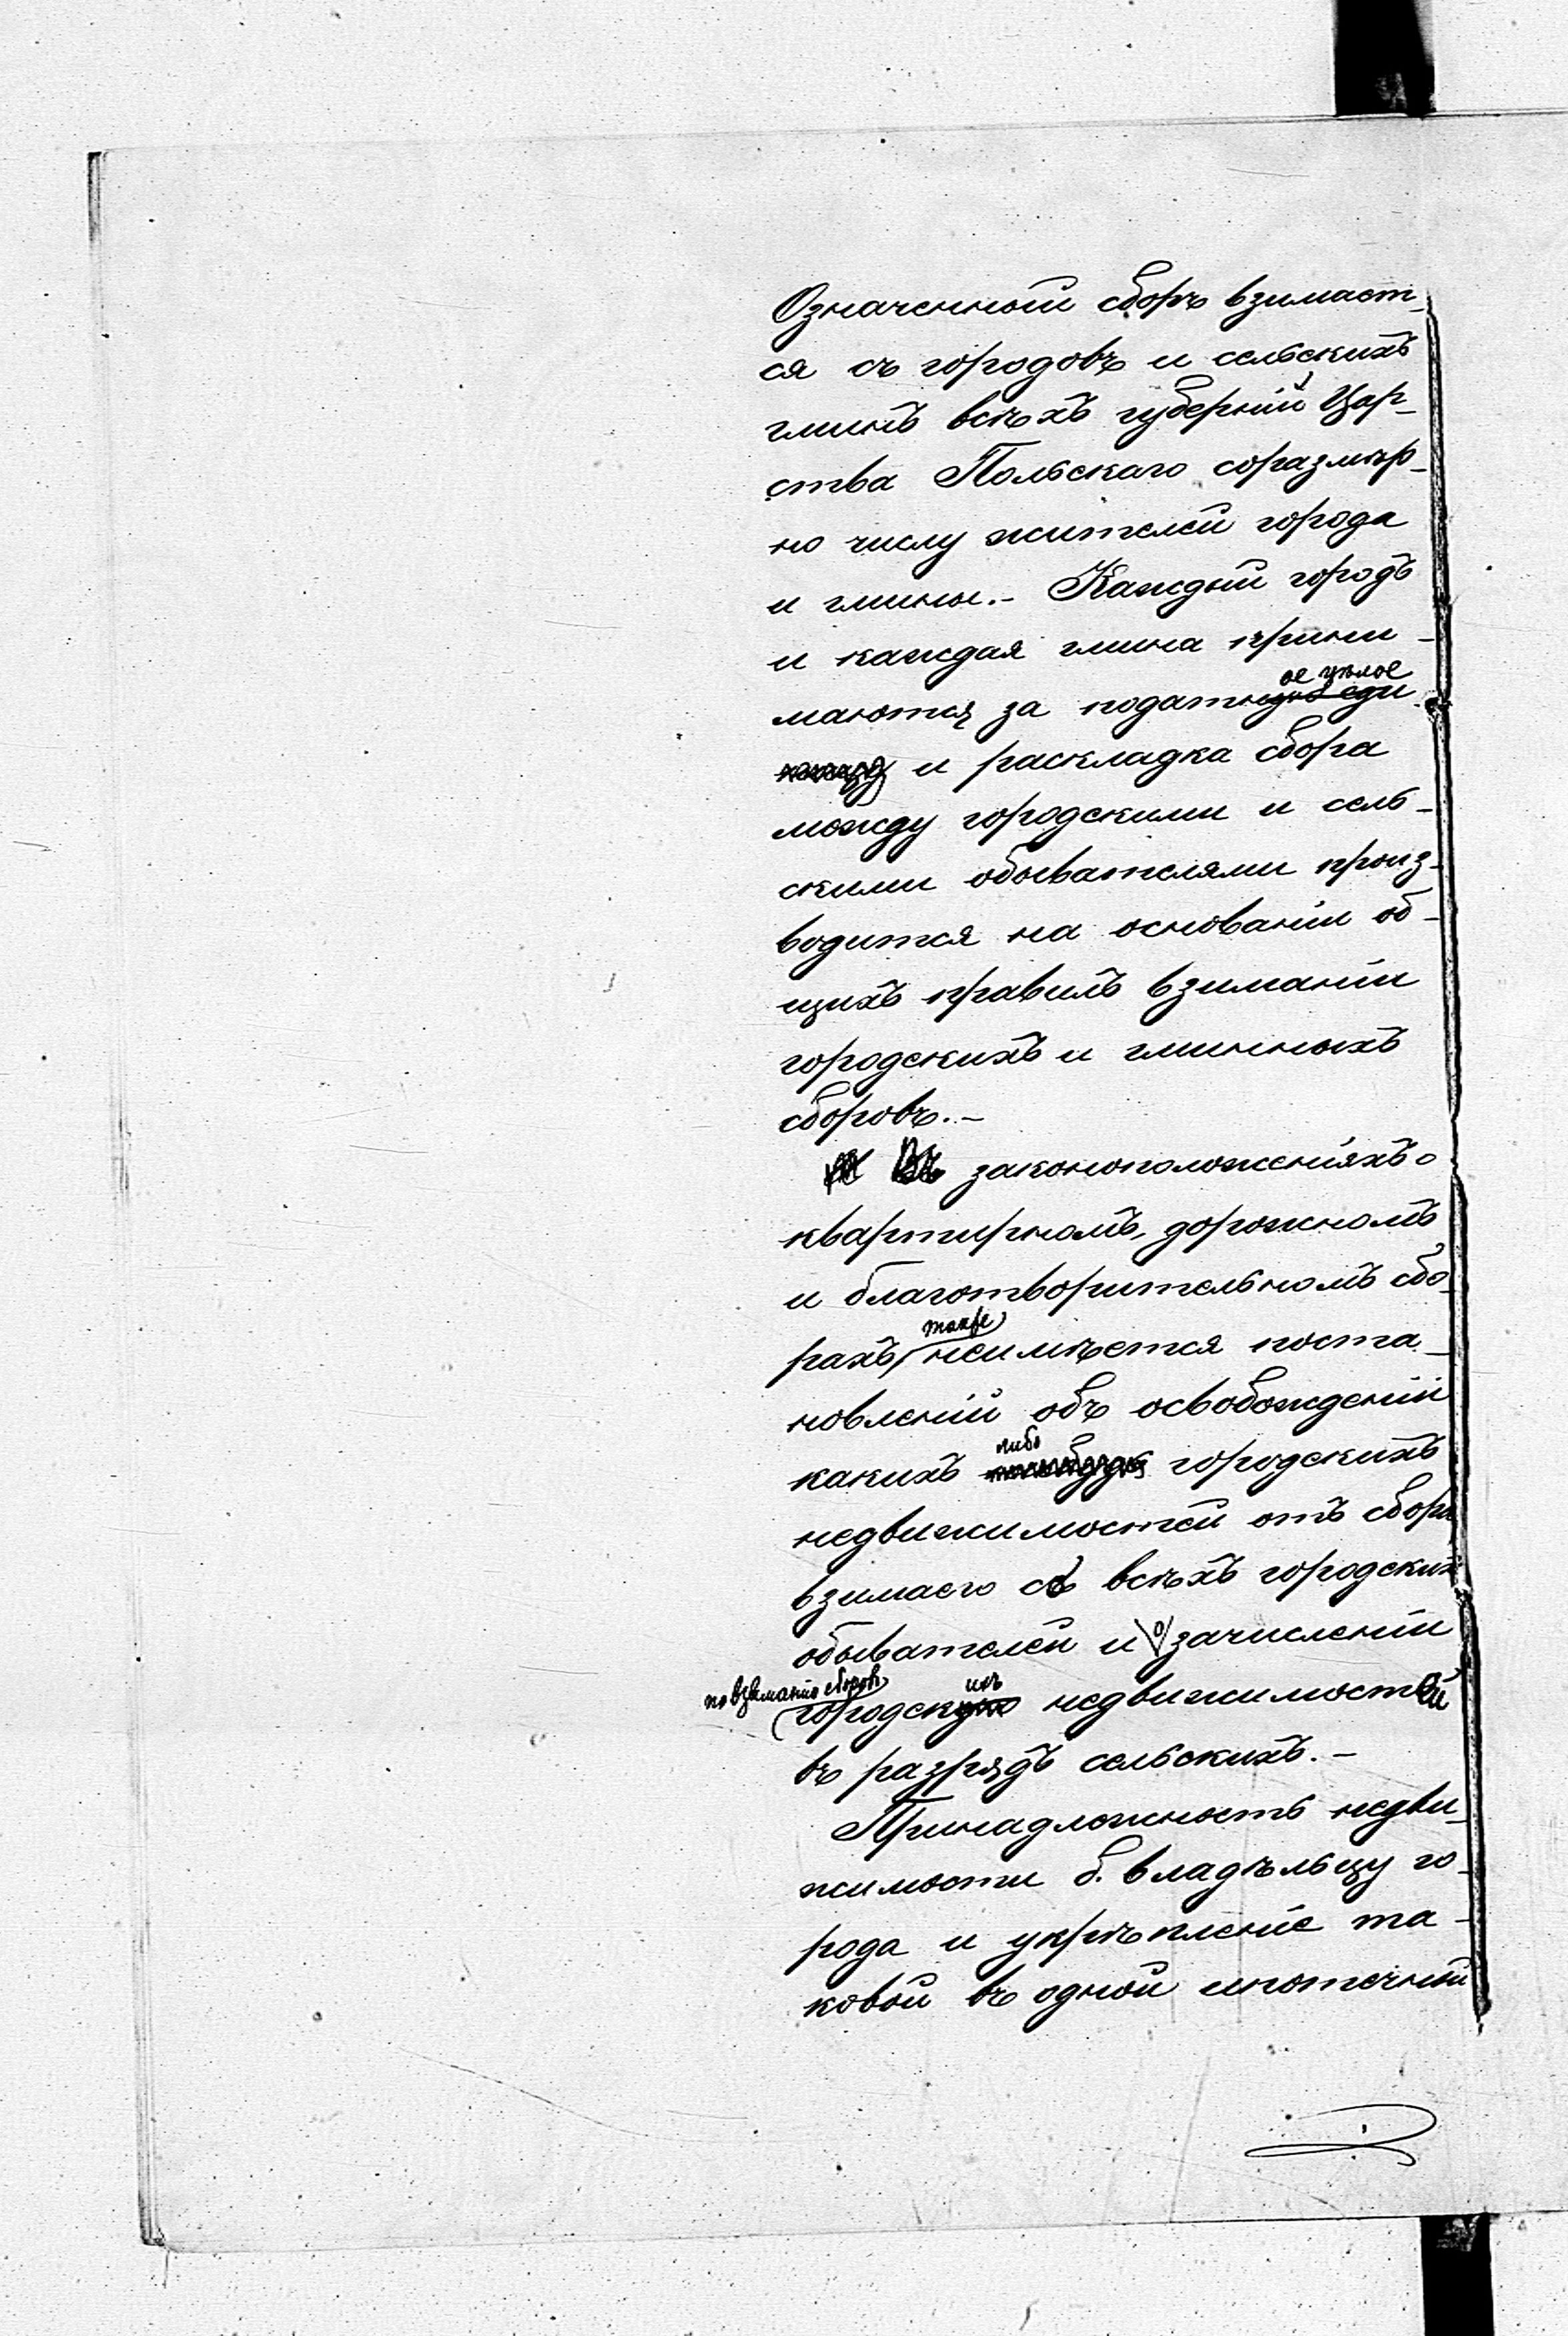 Означенный сборъ взимает-
ся съ городовъ и сельскихъ
гминъ всѣхъ губерній Цар-
ства Польскаго соразмѣр-
но числу жителей города
и гмины.- Каждый городъ
и каждая гмина прини-
маются за податное цѣлое
и раскладка сбора
между городскими и сель-
скими обывателями произ-
водится на основаніи об-
щихъ правилъ взиманіи
городскихъ и гминныхъ
сборовъ.-
Въ законоположеніяхъ о
квартирномъ, дорожномъ
и благотворительномъ сбо-
рахъ, также неимѣется поста-
новленій объ освобожденіи
какихъ либо городскихъ
недвижимостей отъ сбора
взимаего съ всѣхъ городских
обывателей и о зачисленіи
по взиманію сборовъ городскихъ недвижимостей
въ разрядъ сельскихъ.-
Принадлежность недви-
жимости б. владѣльцу го-
рода и укрѣпленіе та-
ковой въ одной ипотечной